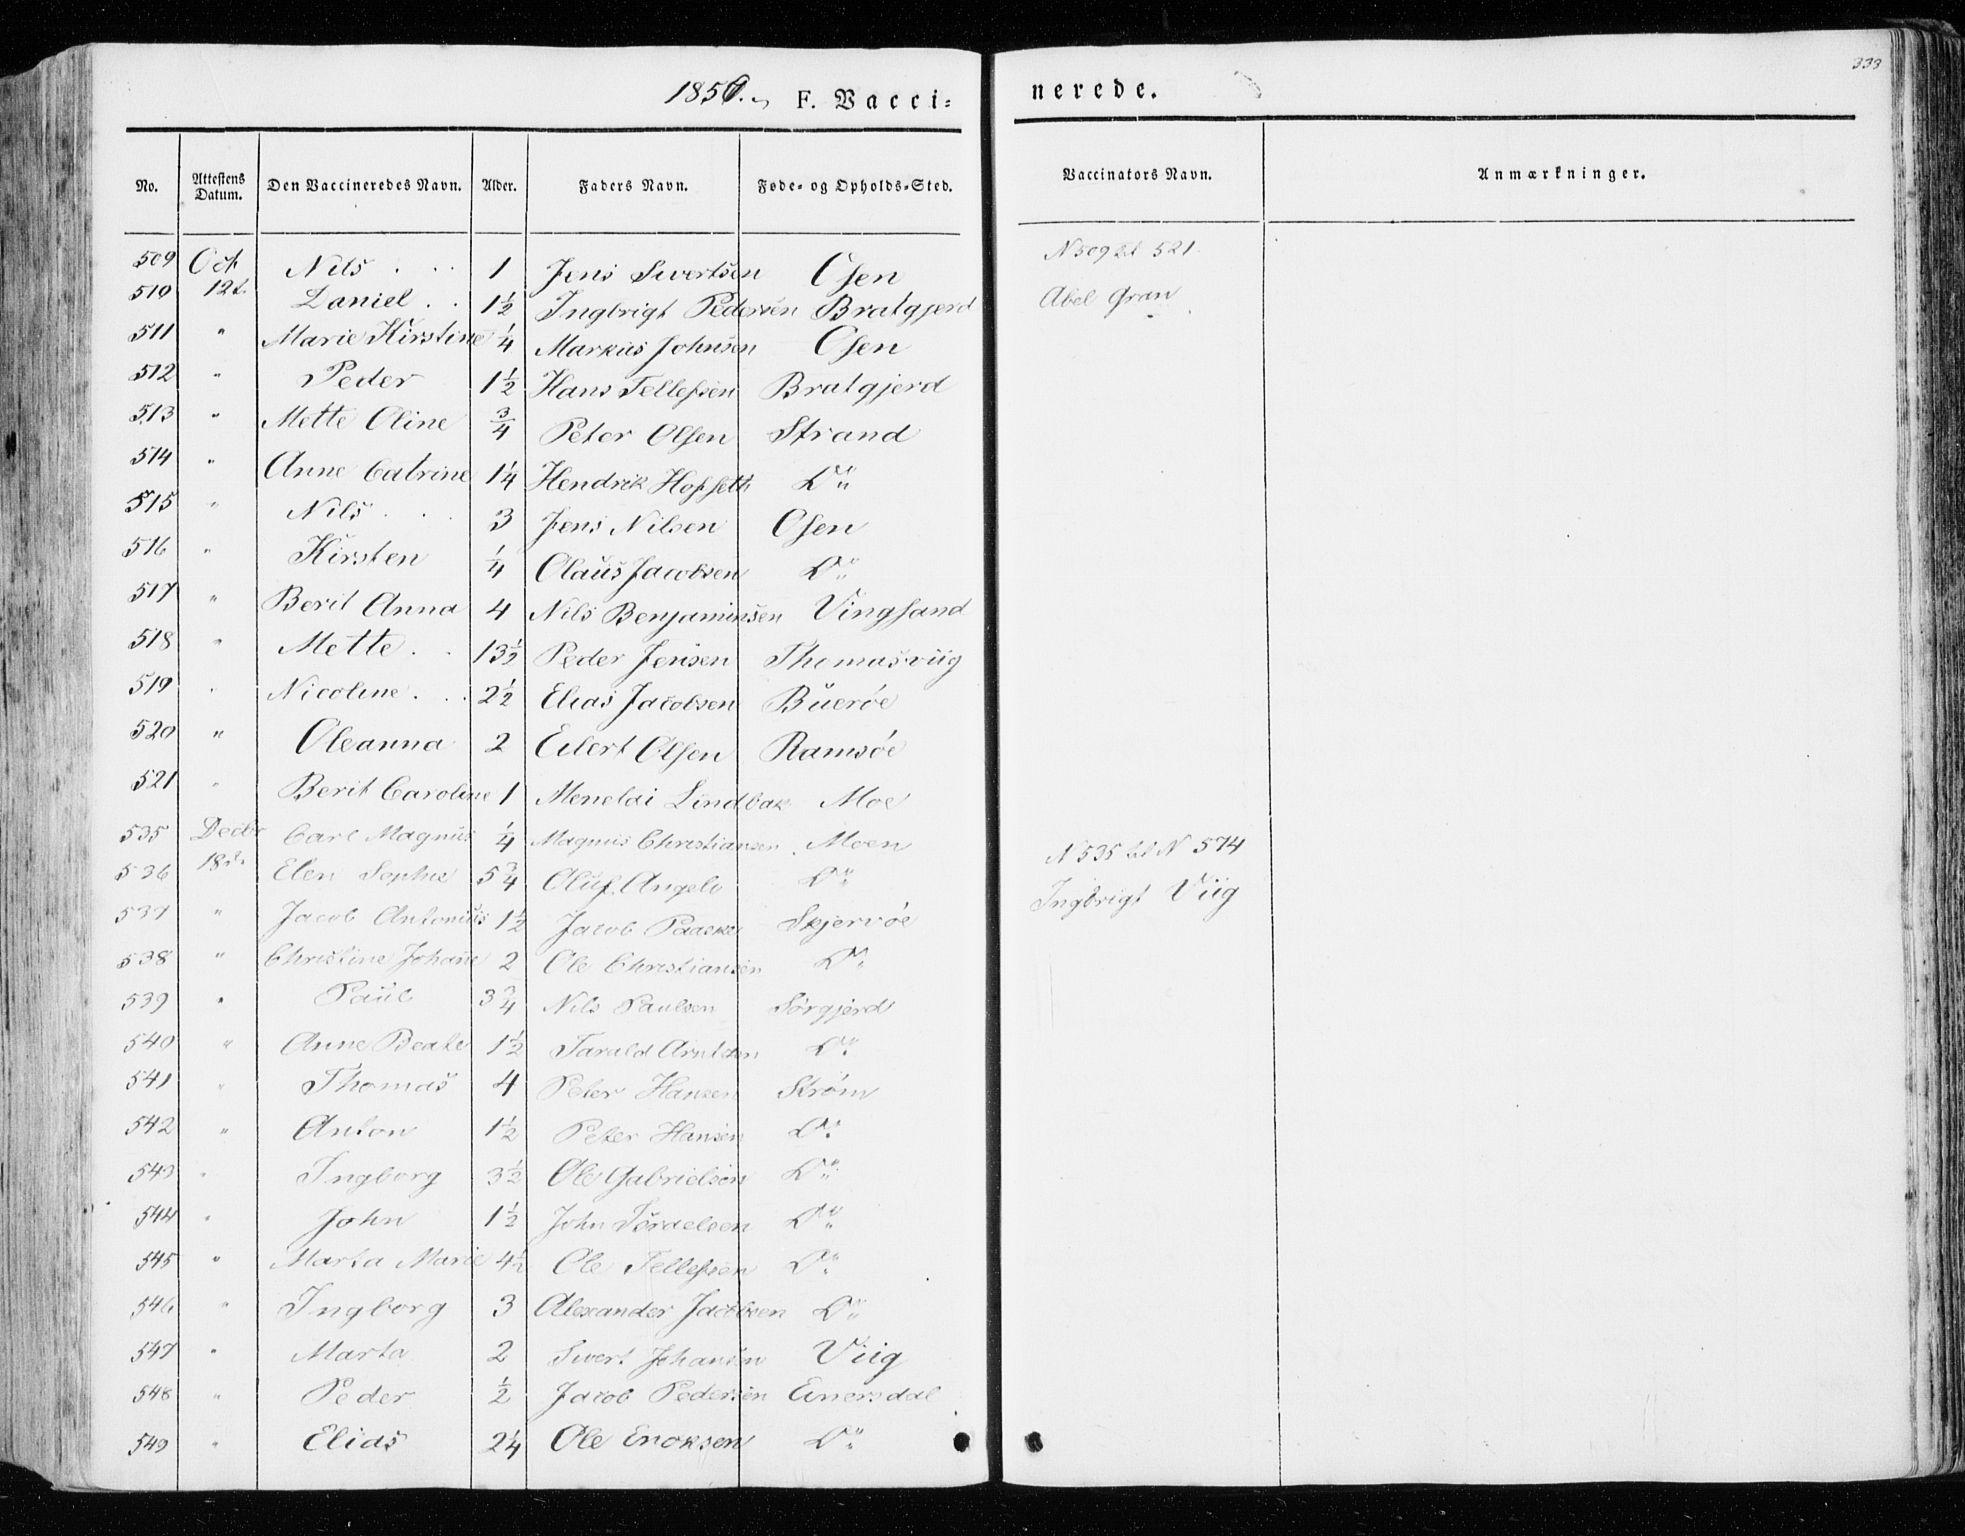 333
1850. F. Vacci=
nerede.
No. Attestens Datum. Den Vaccineredes Navn. Alder. Faders Navn. Føde= og Opholds=Sted. Vaccinators Navn. Anmærkninger.
509 Oct Nils . . . 1 Jens Sivertsen Osen N 509 til 521.
510 12t. Daniel . . 1½ Ingbrigt Pedersen Bratgjerd Abel Gran
511 " Marie Kirstine ¼ Markus Johnsen Osen
512 " Peder 1½ Hans Tellefsen Bratgjerd
513 " Mette Oline ¾ Peter Olsen Strand
514 " Anne Catrine 1¼ Hendrik Hofseth Do
515 " Nils . . . 3 Jens Nilsen Osen
516 " Kirsten ¼ Olaus Jacobsen Do
517 " Berit Anna 4 Nils Benjaminsen Vingsand
518 " Mette . . 13½ Peder Jensen Thomasviig
519 " Nicoline . . . 2½ Elias Jacobsen Buerøe
520 " Oleanna 2 Eilert Olsen Ramsøe
521 " Berit Caroline 1 Menelai Lindbak Moe
535 Decbr Carl Magnus ¼ Magnus Christiansen Moen N 535 til N 574
536 18d. Elen Sophie 5¾ Oluf Angelo Do Ingbrigt Viig
537 " Jacob Antonius 1½ Jacob Paaske Skjervøe
538 " Christine Johane 2 Ole Christiansen Do
539 " Paul 3¾ Nils Paulsen Sørgjerd
540 " Anne Beate 1½ Tarald Arntsen Do
541 " Thomas 4 Peter Hansen Strøm
542 " Anton 1½ Peter Hansen Do
543 " Ingborg 3½ Ole Gabrielsen Do
544 " John 1½ John Israelsen Do
545 " Marta Marie 4½ Ole Tellefsen Do
546 " Ingborg 3 Alexander Jacobsen Do
547 " Marta 2 Sivert Johansen Viig
548 " Peder ½ Jacob Pedersen Einersdal
549 " Elias 2¼ Ole Enoksen Do